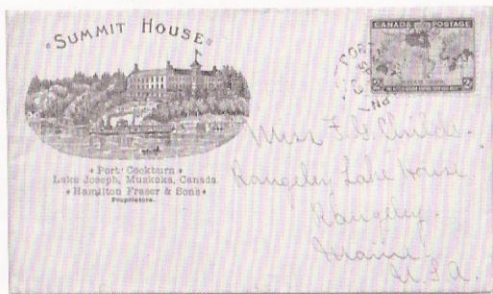 SUMMIT HOUSE
Port Cockburn
Lake Joseph, Muskoka, Canada.
Hamilton Fraser & Sons
Proprietors.
CANADA POSTAGE
PORT
Miss F. G. Childs.
Rangeley Lake House
Rangeley.
Maine.
U.S.A.